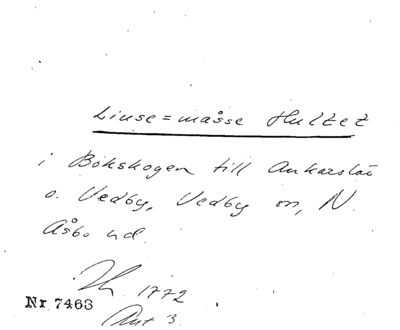 Liuse=måsse Hultet
i Bökskogen till Ankarslöv
o. Vedby, Vedby sn, N.
Åsbo hd.
1772
Nr 7463
Akt 3